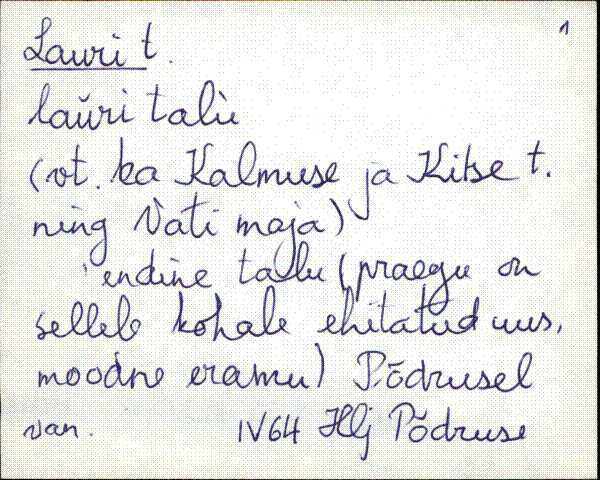 1
Lauri t.
laŭri talu
(vt. ka Kalmuse ja Kitse t.
ning Vati maja)
endine tallu (praegu on
sellele kohale ehitatud uus,
moodne eramu) Põdrusel
van. IV 64 Hlj Põdruse